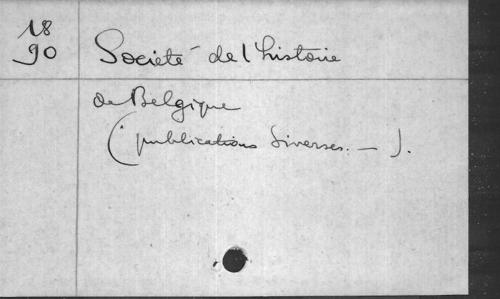 18
90 Société de l'histoire
de Belgique
(publications diverses. — ).